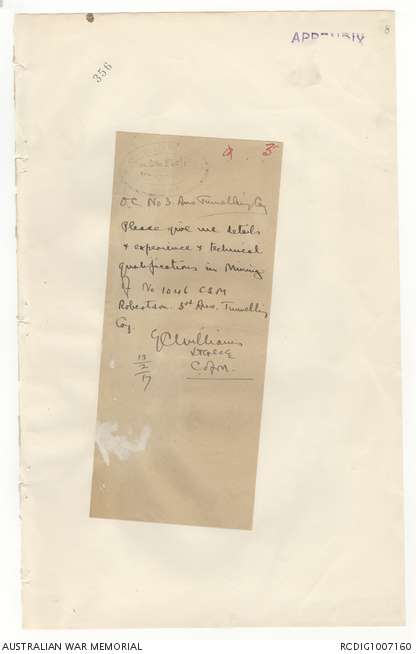 APPENDIX
8
356
a. 3
O.C. No 3. Aus Tunnelling Coy
Please give me details
& experience & technical
qualifications in Mining
of No 1046 CSM
Robertson. 3rd Aus. Tunnelling
Coy.
GCWilliams
Lt Col RE
C. of M.
13/2/17
AUSTRALIAN WAR MEMORIAL
RCDIG1007160